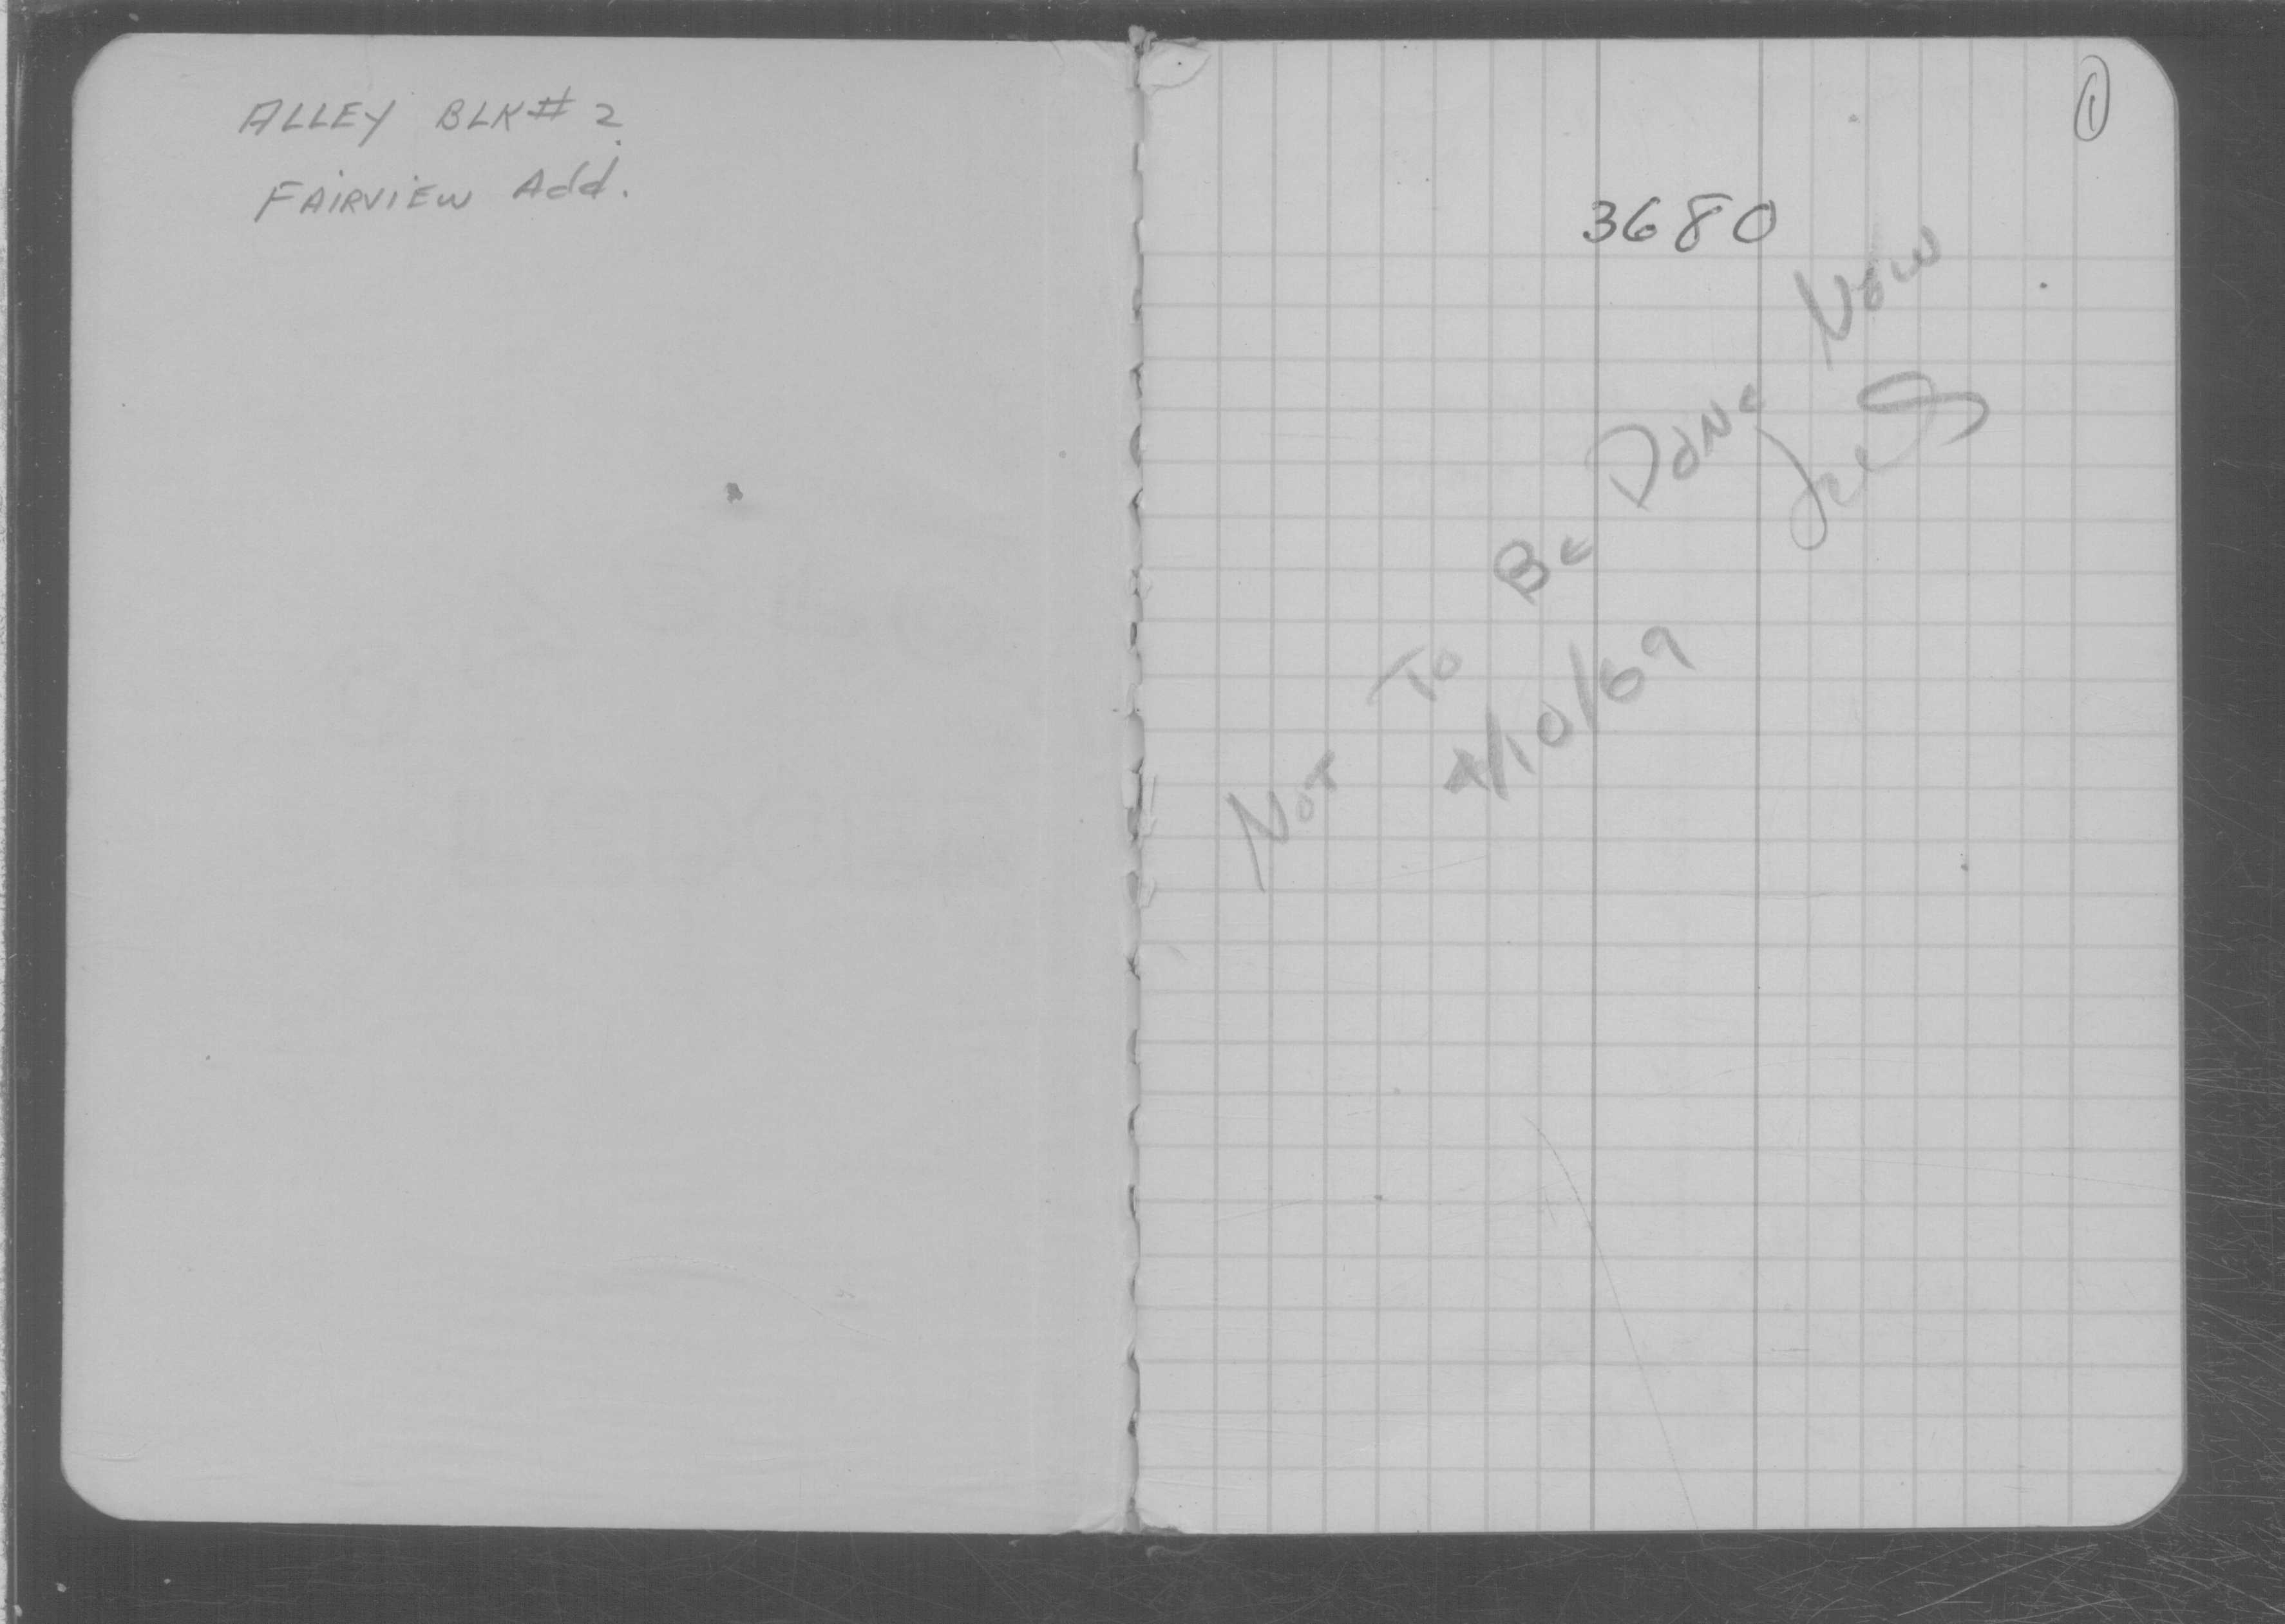 ALLEY BLK # 2
FAIRVIEW Add.
1
3680
Not To Be Done Now
4/10/69